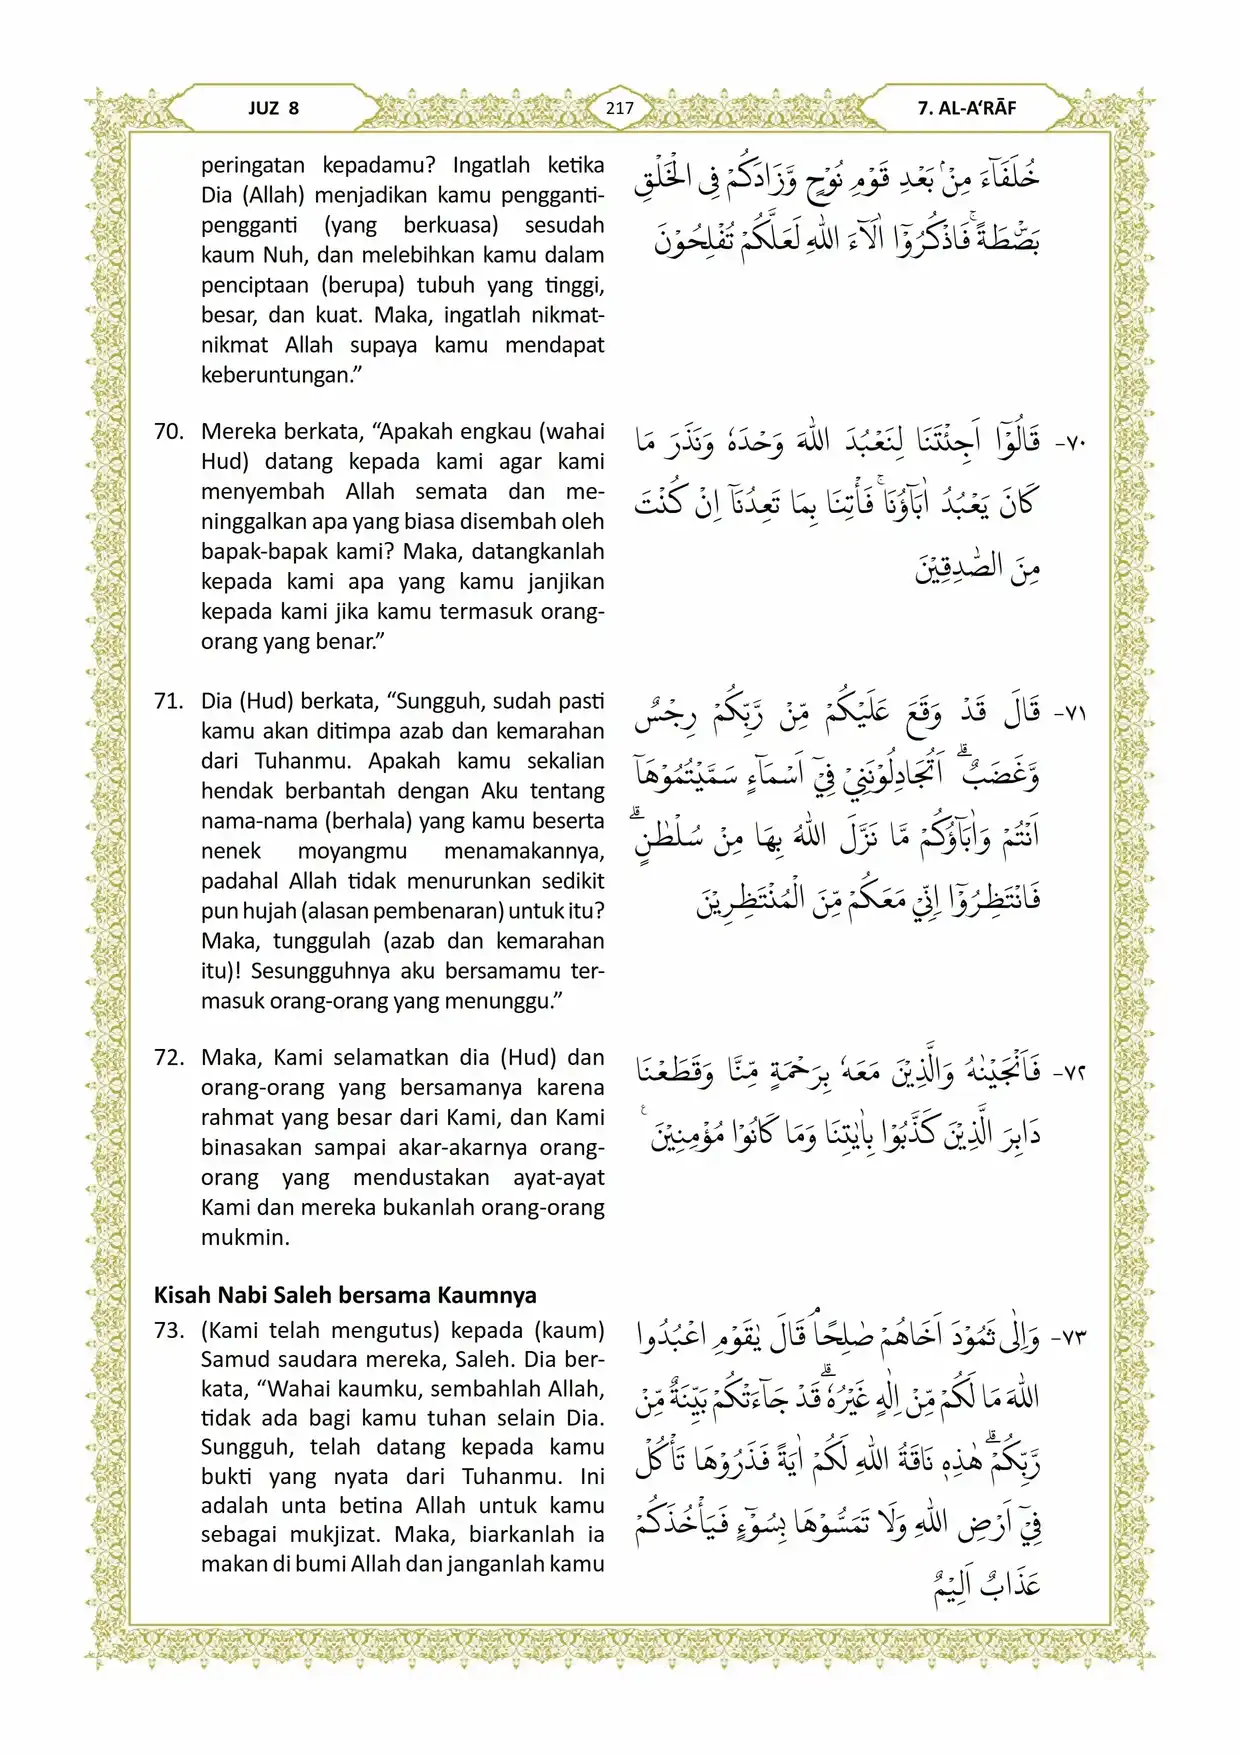 JUZ 8
217
7. AL-A‘RĀF
peringatan kepadamu? Ingatlah ketika
Dia (Allah) menjadikan kamu pengganti-
pengganti (yang berkuasa) sesudah
kaum Nuh, dan melebihkan kamu dalam
penciptaan (berupa) tubuh yang tinggi,
besar, dan kuat. Maka, ingatlah nikmat-
nikmat Allah supaya kamu mendapat
keberuntungan.”
خُلَفَاۤءَ مِنْۢ بَعْدِ قَوْمِ نُوْحٍ وَّزَادَكُمْ فِى الْخَلْقِ
بَصْۣطَةًۚ فَاذْكُرُوْٓا اٰلَاۤءَ اللّٰهِ لَعَلَّكُمْ تُفْلِحُوْنَ
70. Mereka berkata, “Apakah engkau (wahai
Hud) datang kepada kami agar kami
menyembah Allah semata dan me-
ninggalkan apa yang biasa disembah oleh
bapak-bapak kami? Maka, datangkanlah
kepada kami apa yang kamu janjikan
kepada kami jika kamu termasuk orang-
orang yang benar.”
٧٠- قَالُوْٓا اَجِئْتَنَا لِنَعْبُدَ اللّٰهَ وَحْدَهٗ وَنَذَرَ مَا
كَانَ يَعْبُدُ اٰبَاۤؤُنَاۚ فَأْتِنَا بِمَا تَعِدُنَآ اِنْ كُنْتَ
مِنَ الصّٰدِقِيْنَ
71. Dia (Hud) berkata, “Sungguh, sudah pasti
kamu akan ditimpa azab dan kemarahan
dari Tuhanmu. Apakah kamu sekalian
hendak berbantah dengan Aku tentang
nama-nama (berhala) yang kamu beserta
nenek moyangmu menamakannya,
padahal Allah tidak menurunkan sedikit
pun hujah (alasan pembenaran) untuk itu?
Maka, tunggulah (azab dan kemarahan
itu)! Sesungguhnya aku bersamamu ter-
masuk orang-orang yang menunggu.”
٧١- قَالَ قَدْ وَقَعَ عَلَيْكُمْ مِّنْ رَّبِّكُمْ رِجْسٌ
وَّغَضَبٌۗ اَتُجَادِلُوْنَنِيْ فِيْٓ اَسْمَاۤءٍ سَمَّيْتُمُوْهَآ
اَنْتُمْ وَاٰبَاۤؤُكُمْ مَّا نَزَّلَ اللّٰهُ بِهَا مِنْ سُلْطٰنٍۗ
فَانْتَظِرُوْٓا اِنِّيْ مَعَكُمْ مِّنَ الْمُنْتَظِرِيْنَ
72. Maka, Kami selamatkan dia (Hud) dan
orang-orang yang bersamanya karena
rahmat yang besar dari Kami, dan Kami
binasakan sampai akar-akarnya orang-
orang yang mendustakan ayat-ayat
Kami dan mereka bukanlah orang-orang
mukmin.
٧٢- فَاَنْجَيْنٰهُ وَالَّذِيْنَ مَعَهٗ بِرَحْمَةٍ مِّنَّا وَقَطَعْنَا
دَابِرَ الَّذِيْنَ كَذَّبُوْا بِاٰيٰتِنَا وَمَا كَانُوْا مُؤْمِنِيْنَ ࣖ
Kisah Nabi Saleh bersama Kaumnya
73. (Kami telah mengutus) kepada (kaum)
Samud saudara mereka, Saleh. Dia ber-
kata, “Wahai kaumku, sembahlah Allah,
tidak ada bagi kamu tuhan selain Dia.
Sungguh, telah datang kepada kamu
bukti yang nyata dari Tuhanmu. Ini
adalah unta betina Allah untuk kamu
sebagai mukjizat. Maka, biarkanlah ia
makan di bumi Allah dan janganlah kamu
٧٣- وَاِلٰى ثَمُوْدَ اَخَاهُمْ صٰلِحًاۘ قَالَ يٰقَوْمِ اعْبُدُوا
اللّٰهَ مَا لَكُمْ مِّنْ اِلٰهٍ غَيْرُهٗۗ قَدْ جَاۤءَتْكُمْ بَيِّنَةٌ مِّنْ
رَّبِّكُمْۗ هٰذِهٖ نَاقَةُ اللّٰهِ لَكُمْ اٰيَةً فَذَرُوْهَا تَأْكُلْ
فِيْٓ اَرْضِ اللّٰهِ وَلَا تَمَسُّوْهَا بِسُوْۤءٍ فَيَأْخُذَكُمْ
عَذَابٌ اَلِيْمٌ